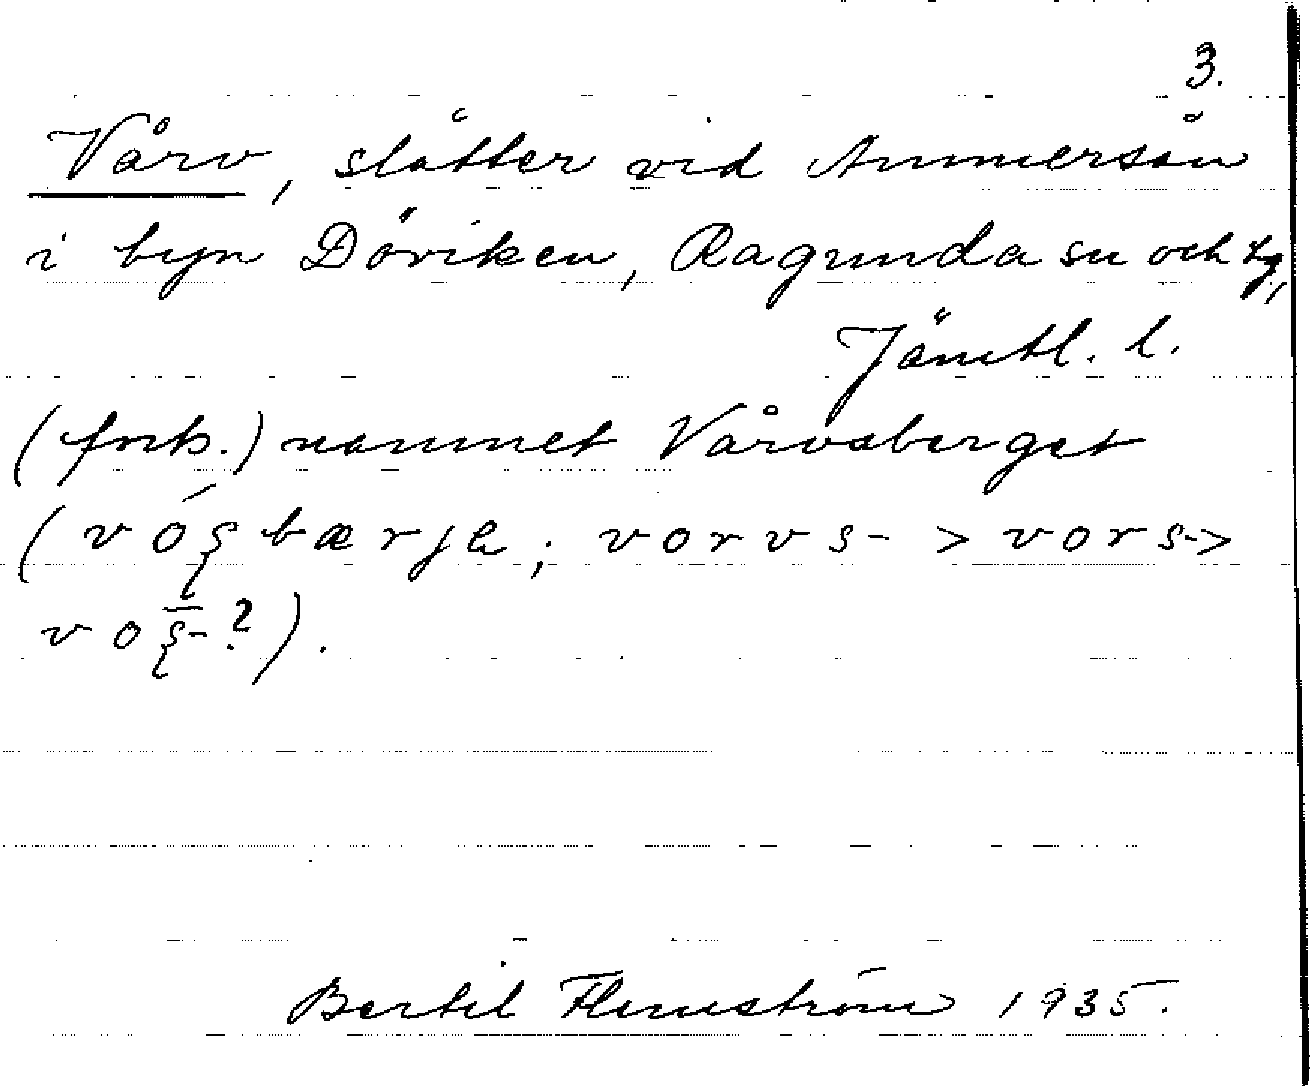 3.
Vårv, slåtter vid Ammersån
i byn Döviken, Ragunda sn och tg,
Jämtl. l.
(förk.) namnet Vårvsberget
(vóʂbærjə; vorvs- > vors->
voʂ-?).
Bertil Flemström 1935.